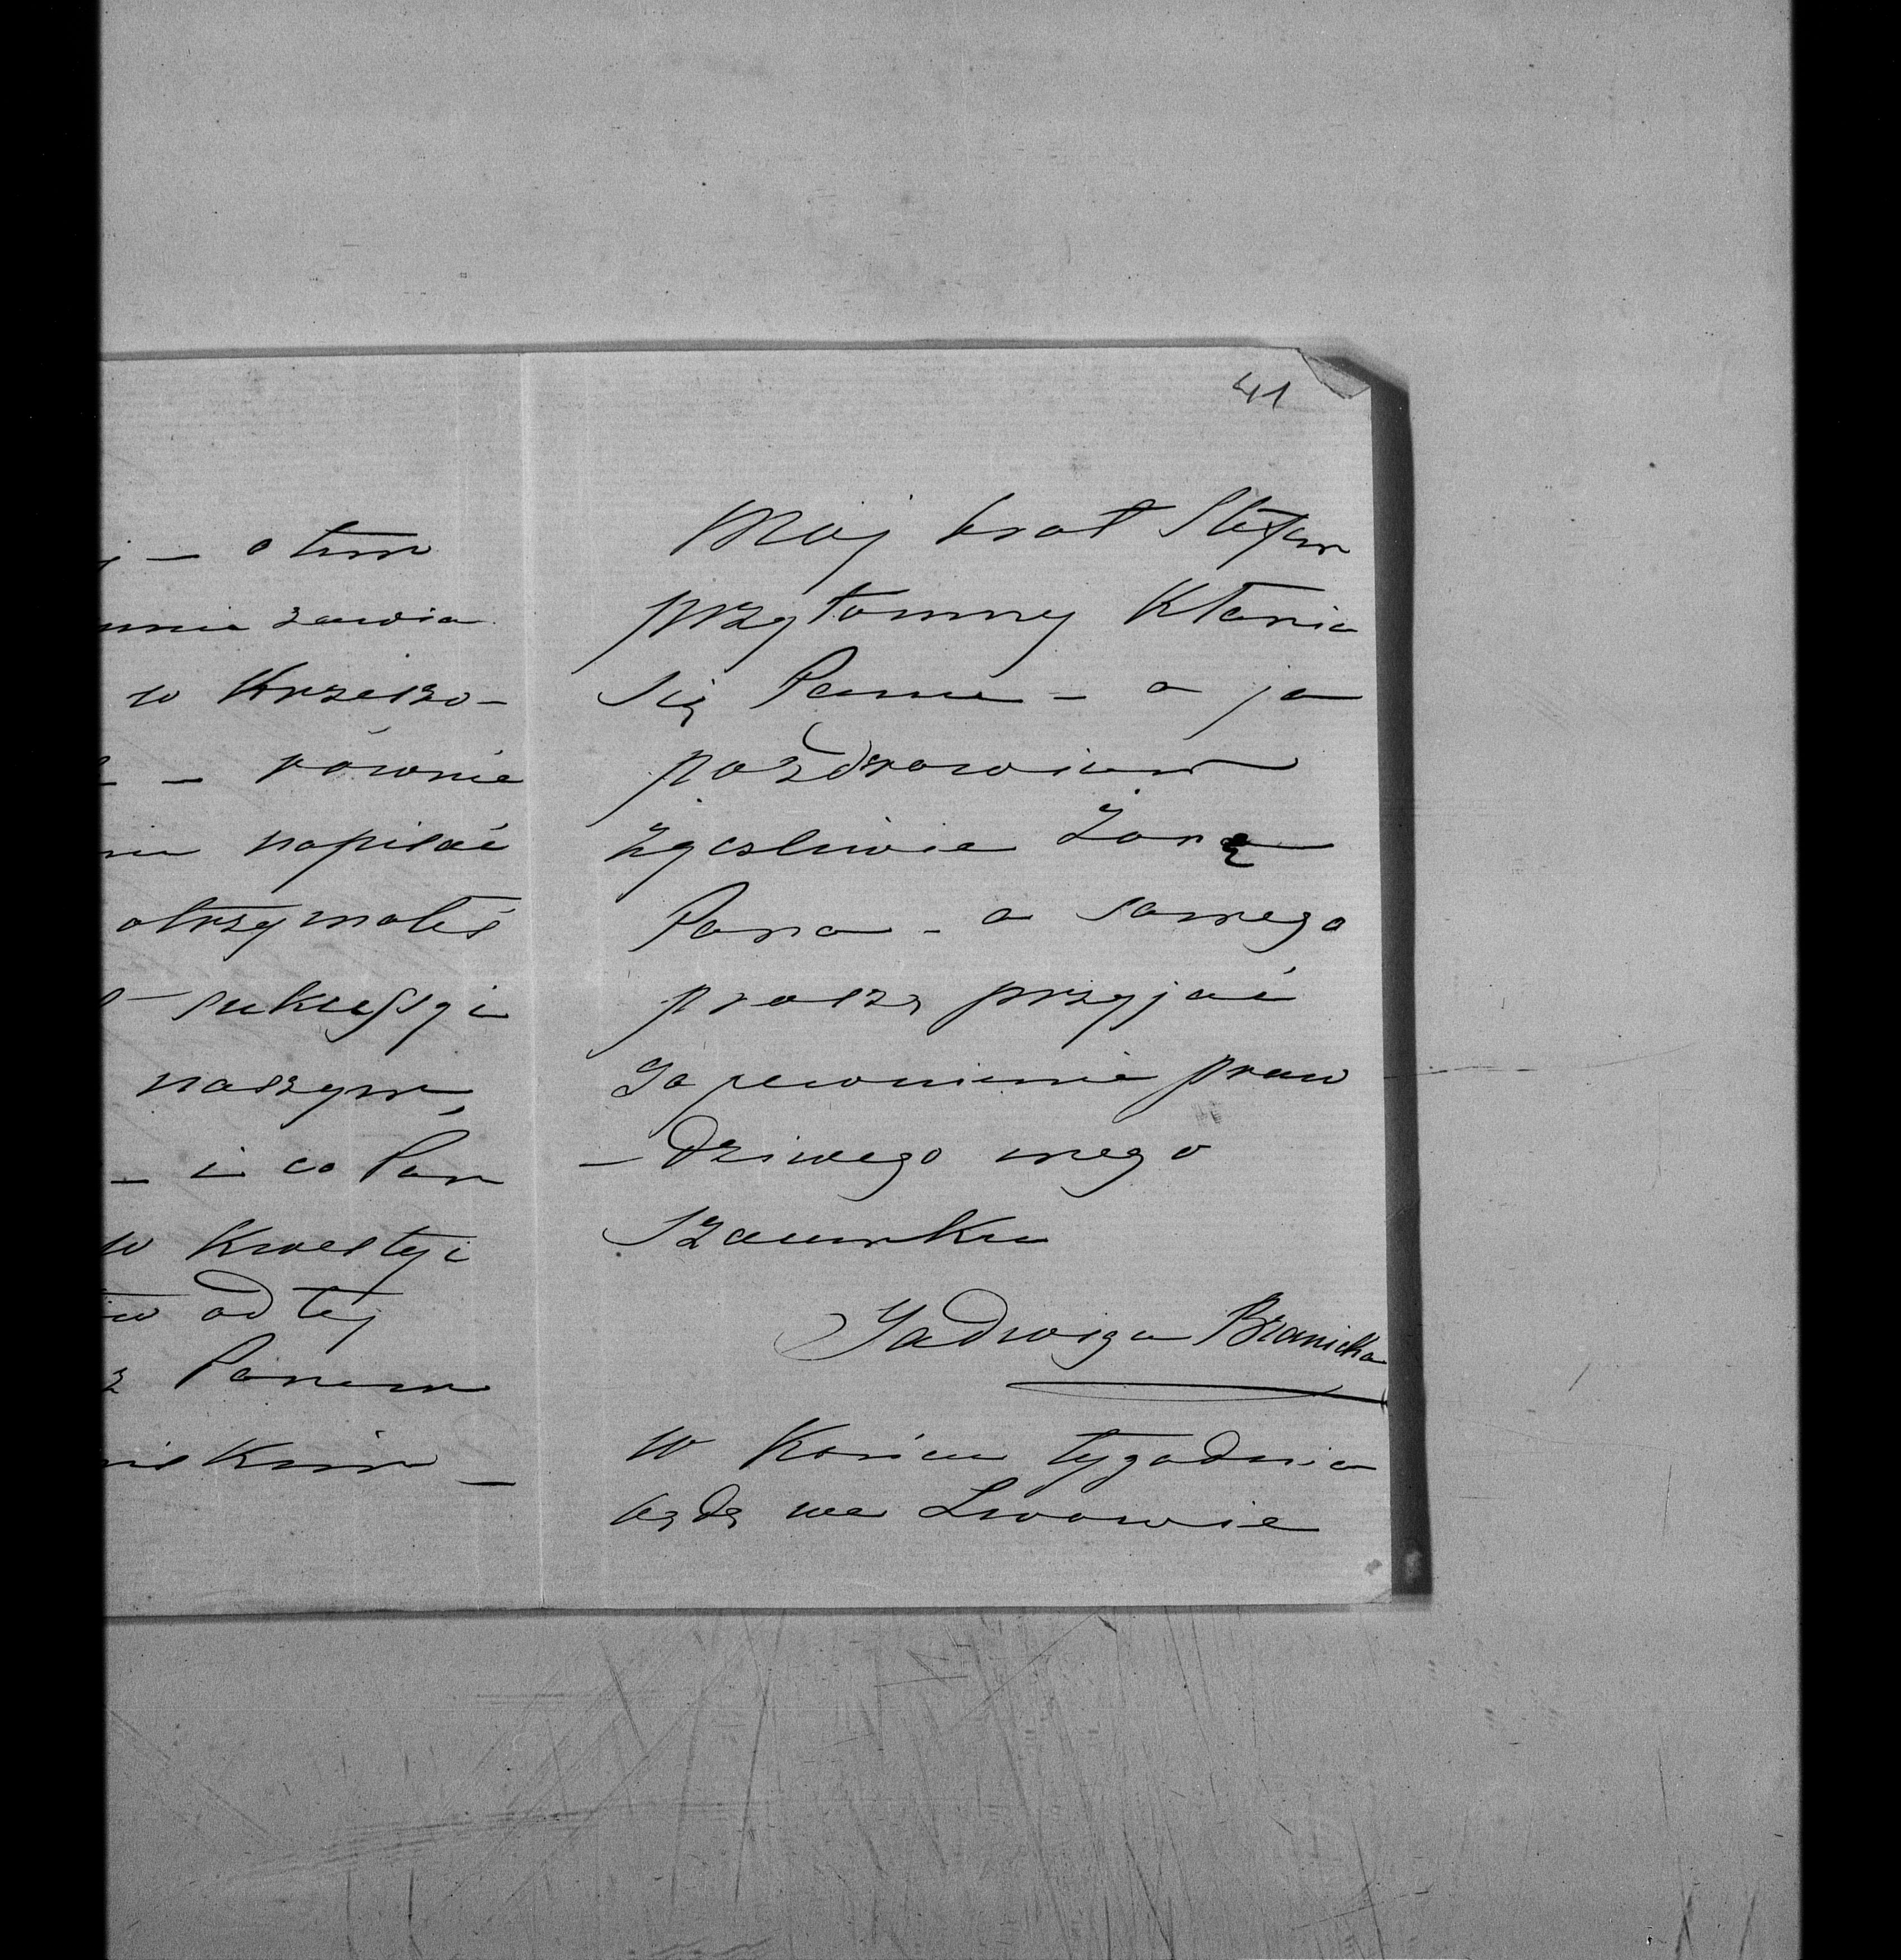 41
- o tem
zawia
w Krzeszo-
- równie
napisać
otrzymałeś
sukcessyi
naszym,
- i co Pan
w Kwestyi
od tej
z Panem
Mój brat Stefan
przytomny Kłania
się Panu - a ja
pozdrawiam
życzliwie Żonę
Pana - a samego
proszę przyjąć
Zapewnienie praw
- dziwego mego
Szacunku
Jadwiga Branicka
w Końcu tygodnia
będę we Lwowie